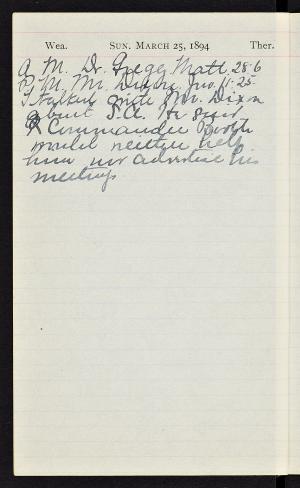 Wea. SUN. MARCH 25, 1894 Ther.
A. M. Dr. Gregg Matt. 28-6
P. M. Mr. Dixon. Jno. 11-25
I talked with Mr. Dixon
about S. A. He said
Commander Booth
would neither help
him nor advertise his
meetings